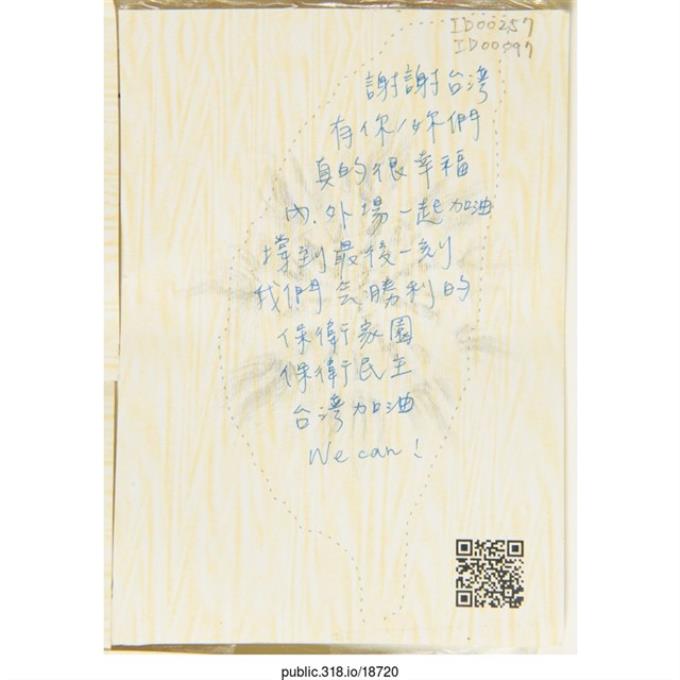 ID00257
ID00597
謝謝台灣
有你/妳們
真的很幸福
內.外場一起加油
撐到最後一刻
我們会勝利的
保衛家園
保衛民主
台灣加油
We can!
public.318.io/18720